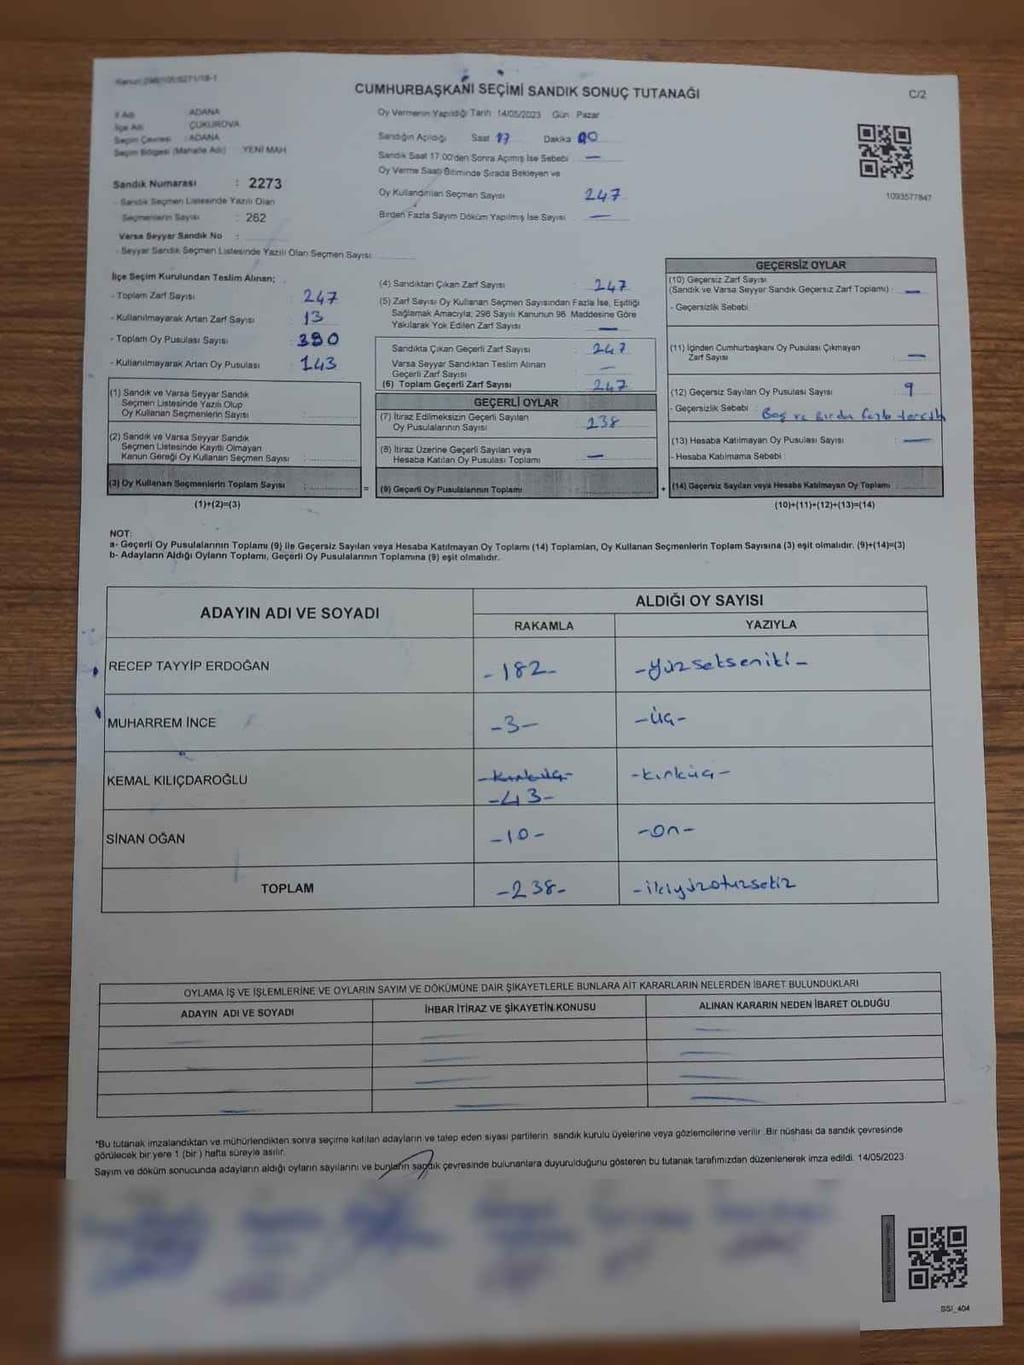 CUMHURBAŞKANI SEÇİMİ SANDIK SONUÇ TUTANAĞI
C/2
İl Adı : ADANA
İlçe Adı : ÇUKUROVA
Seçim Çevresi : ADANA
Seçim Bölgesi (Mahalle Adı) : YENİ MAH
Sandık Numarası : 2273
- Sandık Seçmen Listesinde Yazılı Olan
Seçmenlerin Sayısı : 262
Varsa Seyyar Sandık No :
- Seyyar Sandık Seçmen Listesinde Yazılı Olan Seçmen Sayısı:
Oy Vermenin Yapıldığı Tarih : 14/05/2023 Gün : Pazar
Sandığın Açıldığı Saat 17 Dakika 00
Sandık Saat 17.00'den Sonra Açılmış İse Sebebi : —
Oy Verme Saati Bitiminde Sırada Bekleyen ve
Oy Kullandırılan Seçmen Sayısı 247
Birden Fazla Sayım Döküm Yapılmış İse Sayısı —
1093577847
İlçe Seçim Kurulundan Teslim Alınan;
- Toplam Zarf Sayısı : 247
- Kullanılmayarak Artan Zarf Sayısı : 13
- Toplam Oy Pusulası Sayısı : 390
- Kullanılmayarak Artan Oy Pusulası : 143
(1) Sandık ve Varsa Seyyar Sandık
Seçmen Listesinde Yazılı Olup
Oy Kullanan Seçmenlerin Sayısı :
(2) Sandık ve Varsa Seyyar Sandık
Seçmen Listesinde Kayıtlı Olmayan
Kanun Gereği Oy Kullanan Seçmen Sayısı :
(3) Oy Kullanan Seçmenlerin Toplam Sayısı :
(1)+(2)=(3)
(4) Sandıktan Çıkan Zarf Sayısı : 247
(5) Zarf Sayısı Oy Kullanan Seçmen Sayısından Fazla İse, Eşitliği
Sağlamak Amacıyla; 298 Sayılı Kanunun 98. Maddesine Göre
Yakılarak Yok Edilen Zarf Sayısı : —
Sandıkta Çıkan Geçerli Zarf Sayısı : 247
Varsa Seyyar Sandıktan Teslim Alınan
Geçerli Zarf Sayısı : —
(6) Toplam Geçerli Zarf Sayısı : 247
GEÇERLİ OYLAR
(7) İtiraz Edilmeksizin Geçerli Sayılan
Oy Pusulalarının Sayısı : 238
(8) İtiraz Üzerine Geçerli Sayılan veya
Hesaba Katılan Oy Pusulası Toplamı : —
= (9) Geçerli Oy Pusulalarının Toplamı :
GEÇERSİZ OYLAR
(10) Geçersiz Zarf Sayısı
(Sandık ve Varsa Seyyar Sandık Geçersiz Zarf Toplamı) : —
- Geçersizlik Sebebi :
(11) İçinden Cumhurbaşkanı Oy Pusulası Çıkmayan
Zarf Sayısı : —
(12) Geçersiz Sayılan Oy Pusulası Sayısı : 9
- Geçersizlik Sebebi : Boş ve Birden fazla tercih
(13) Hesaba Katılmayan Oy Pusulası Sayısı : —
- Hesaba Katılmama Sebebi :
+ (14) Geçersiz Sayılan veya Hesaba Katılmayan Oy Toplamı :
(10)+(11)+(12)+(13)=(14)
NOT:
a- Geçerli Oy Pusulalarının Toplamı (9) ile Geçersiz Sayılan veya Hesaba Katılmayan Oy Toplamı (14) Toplamları, Oy Kullanan Seçmenlerin Toplam Sayısına (3) eşit olmalıdır. (9)+(14)=(3)
b- Adayların Aldığı Oyların Toplamı, Geçerli Oy Pusulalarının Toplamına (9) eşit olmalıdır.
ADAYIN ADI VE SOYADI
ALDIĞI OY SAYISI
RAKAMLA YAZIYLA
RECEP TAYYİP ERDOĞAN -182- -yüzseksениki-
MUHARREM İNCE -3- -üç-
KEMAL KILIÇDAROĞLU -kırküç- -43- -kırküç-
SİNAN OĞAN -10- -on-
TOPLAM -238- -ikiyüzotuzsekiz
OYLAMA İŞ VE İŞLEMLERİNE VE OYLARIN SAYIM VE DÖKÜMÜNE DAİR ŞİKAYETLERLE BUNLARA AİT KARARLARIN NELERDEN İBARET BULUNDUKLARI
ADAYIN ADI VE SOYADI İHBAR İTİRAZ VE ŞİKAYETİN KONUSU ALINAN KARARIN NEDEN İBARET OLDUĞU
*Bu tutanak imzalandıktan ve mühürlendikten sonra seçime katılan adayların ve talep eden siyasi partilerin sandık kurulu üyelerine veya gözlemcilerine verilir. Bir nüshası da sandık çevresinde
görülecek bir yere 1 (bir) hafta süreyle asılır.
Sayım ve döküm sonucunda adayların aldığı oyların sayılarını ve bunların sandık çevresinde bulunanlara duyurulduğunu gösteren bu tutanak tarafımızdan düzenlenerek imza edildi. 14/05/2023
SSI_404